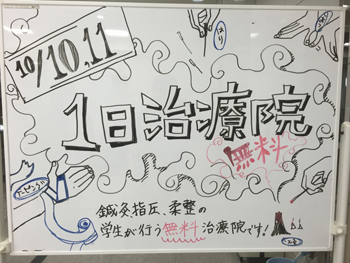 10/10,11
はり
1日治療院
無料
鍼灸指圧、柔整の
学生が行う無料治療院です!